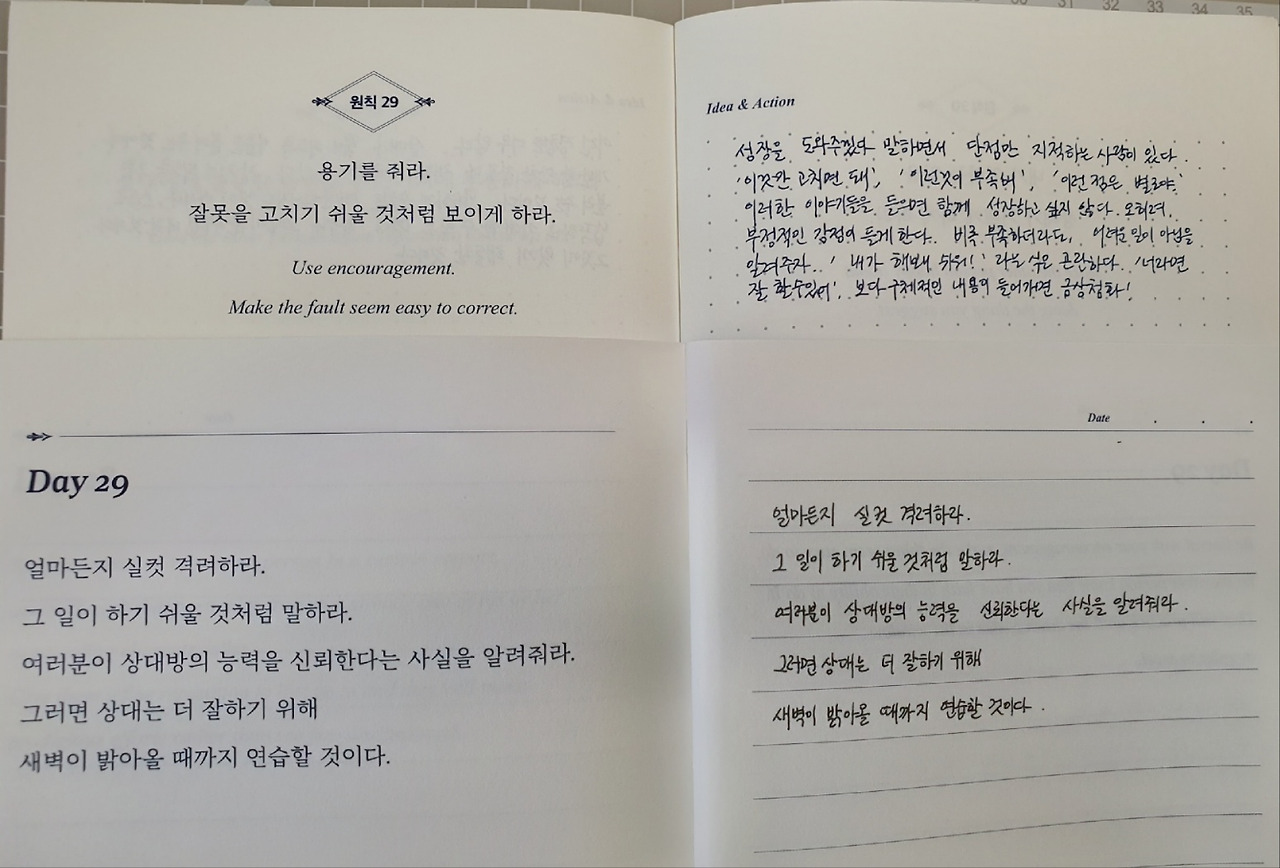 원칙 29
용기를 줘라.
잘못을 고치기 쉬울 것처럼 보이게 하라.
Use encouragement.
Make the fault seem easy to correct.
Idea & Action
성장을 도와주겠다 말하면서 단점만 지적하는 사람이 있다.
'이것만 고치면 돼', '이런것이 부족해', '이런 점은 별로야'
이러한 이야기들을 들으면 함께 성장하고 싶지 않다. 오히려,
부정적인 감정이 들게 한다. 비록 부족하더라도, 어려운 일이 아님을
알려주자. '내가 해봐 쉬워!' 라는 식은 곤란하다. '너라면
잘 할수있어'. 보다 구체적인 내용이 들어가면 금상첨화!
Day 29
얼마든지 실컷 격려하라.
그 일이 하기 쉬울 것처럼 말하라.
여러분이 상대방의 능력을 신뢰한다는 사실을 알려줘라.
그러면 상대는 더 잘하기 위해
새벽이 밝아올 때까지 연습할 것이다.
Date . . .
얼마든지 실컷 격려하라.
그 일이 하기 쉬울 것처럼 말하라.
여러분이 상대방의 능력을 신뢰한다는 사실을 알려줘라.
그러면 상대는 더 잘하기 위해
새벽이 밝아올 때까지 연습할 것이다.